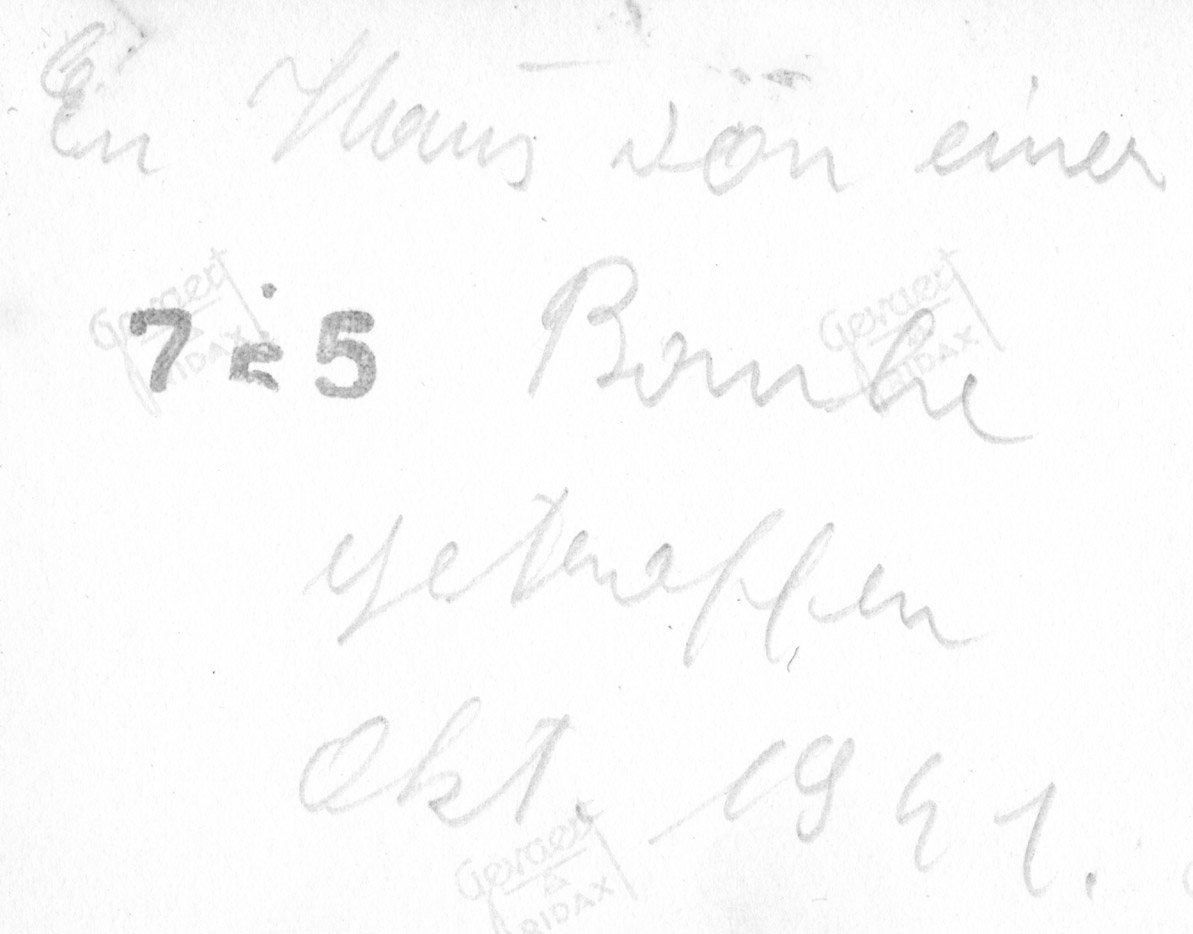 Ein Haus von einer
7 5 Bombe
getroffen
Okt. 1941.
Gevaert
RIDAX
Gevaert
RIDAX
Gevaert
RIDAX